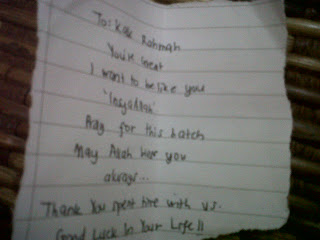 To: Kak Rohmah
You're Great
I want to be like you
'Insyallah'
for this batch
May Allah you
always...
Thank You spent time with us.
Good Luck In Your Life!!